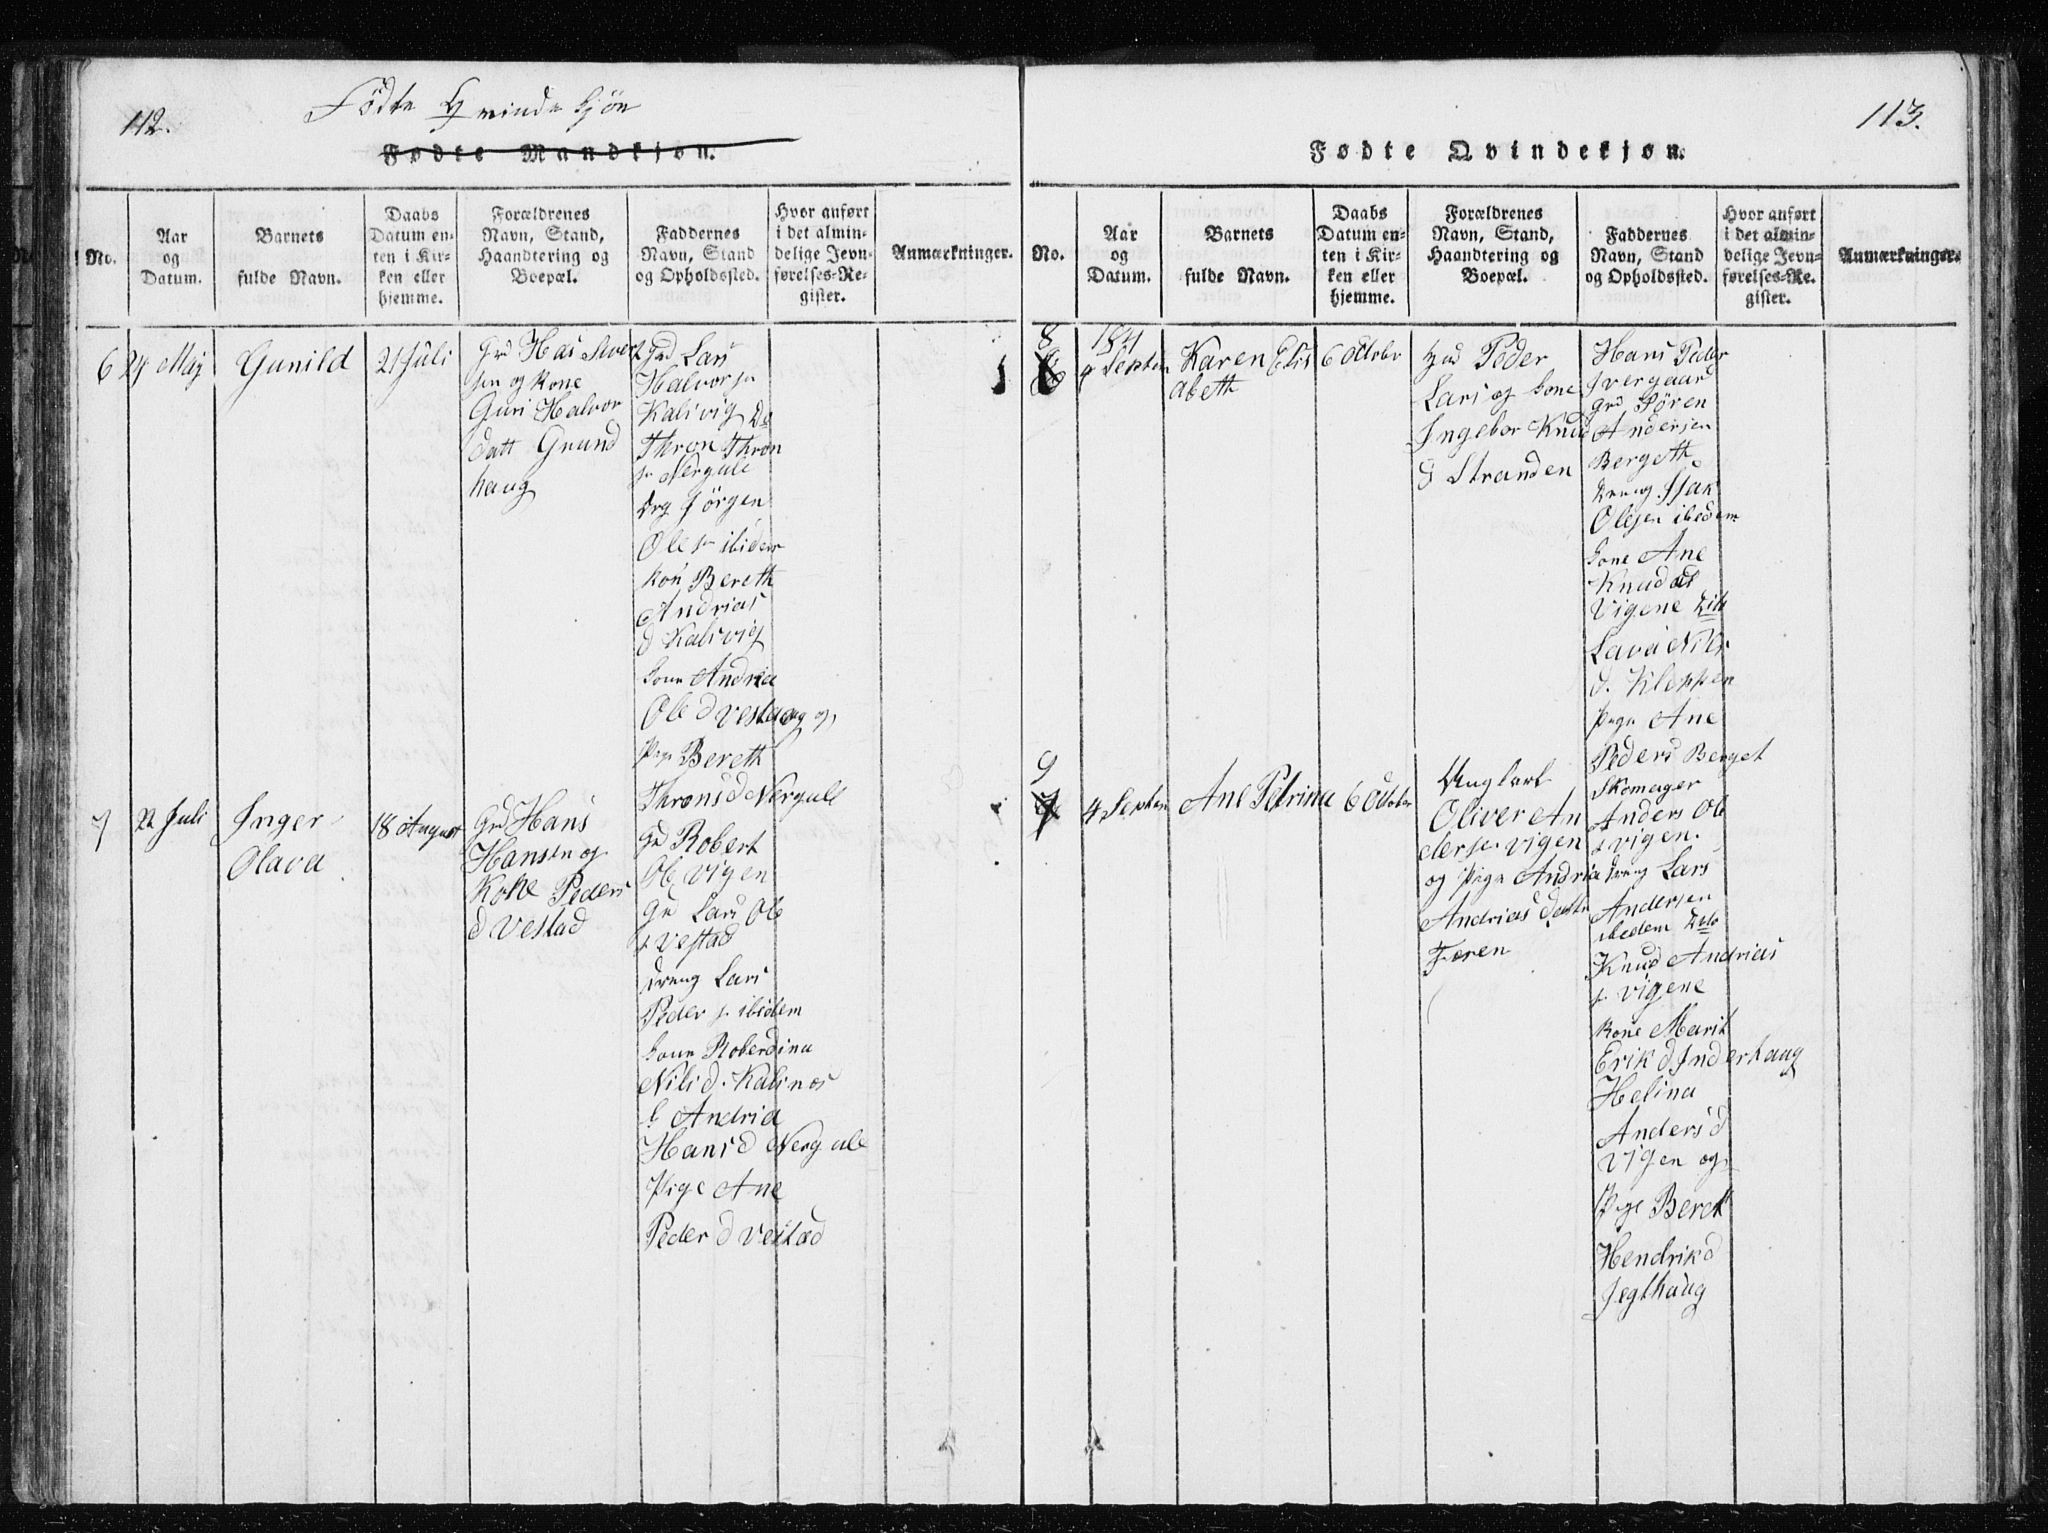 112.
Födte Qvindekjön
Fødte Mandkjøn.
No.
Aar
og
Datum.
Barnets
fulde Navn.
Daabs
Datum en-
ten i Kir-
ken eller
hjemme.
Forældrenes
Navn, Stand,
Haandtering og
Boepæl.
Faddernes
Navn, Stand
og Opholdssted.
Hvor anført
i det almin-
delige Jevn-
førelses-Re-
gister.
Anmærkninger.
6
24 Maj
Gunild
21 Juli
Grd Has Sivert
sen og Kone
Guri Halvor
datt Grund
haug
Grd Lars
Halvorsn
Kalsvig
Thron Thron
sn Nergale
Drg Jörgen
Ole sn ibidem
Kon Bereth
Andrias
d Kalsvig
Kone Andria
Ole d Vesthaug og
Pige Bereth
Throns d Nergale
7
22 Juli
Inger
Olava
18 August
Grd Hans
Hansen og
Kone Peders
d Vestad
Gd Robert
Ols Vigen
Gd Lars Ole
s Vestad
dreng Lars
Peder sn ibidem
Kone Roberdina
Nils d. Kalsnes
K Andria
Hans d Nergale
Pige Ane
Peder d Vestad
113.
Fødte Qvindekjøn.
No.
Aar
og
Datum.
Barnets
fulde Navn.
Daabs
Datum en-
ten i Kir-
ken eller
hjemme.
Forældrenes
Navn, Stand,
Haandtering og
Boepæl.
Faddernes
Navn, Stand
og Opholdssted.
Hvor anført
i det almin-
delige Jevn-
førelses-Re-
gister.
Anmærkninger.
8
1841
4 Septen
Karen Elis
abeth
6 October
Peder
Lars og Kone
Ingebor Knud
d Stranden
Hans Peder
Ivergaard
Grd Sören
Andersen
Bergeth
Dreng Isak
Olesen ibedem
Kone Ane
Knudds
Vigene dito
Lava Nils
d. Kleppen
Pige Ane
Peders Berget
9
4 Septen
Ane Petrina
6 October
Ungkarl
Oliver An
dersn Vigen
og Pige Andria
Andrias datter
Foren
Skomager
Anders Ole
s Vigen.
Dreng Lars
Andersen
ibedem dito
Knud Andrias
s. Vigene
Kone Marit
Erik d Inderhaug
Helina
Anders d
Vigen og
Pige Beret
Hendrik d
Jeglhaug